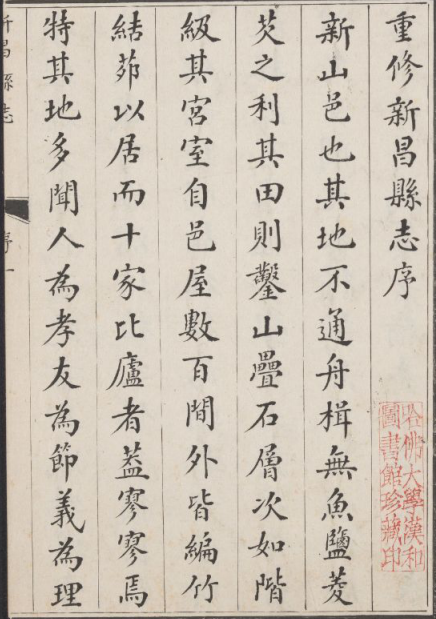 重修新昌縣志序
新山邑也其地不通舟楫無魚鹽菱
芡之利其田則鑿山疊石層次如階
級其宮室自邑屋數百間外皆編竹
結茆以居而十家比廬者葢寥寥焉
特其地多聞人為孝友為節義為理
新昌縣志
序一
哈佛大學漢和
圖書館珍藏印